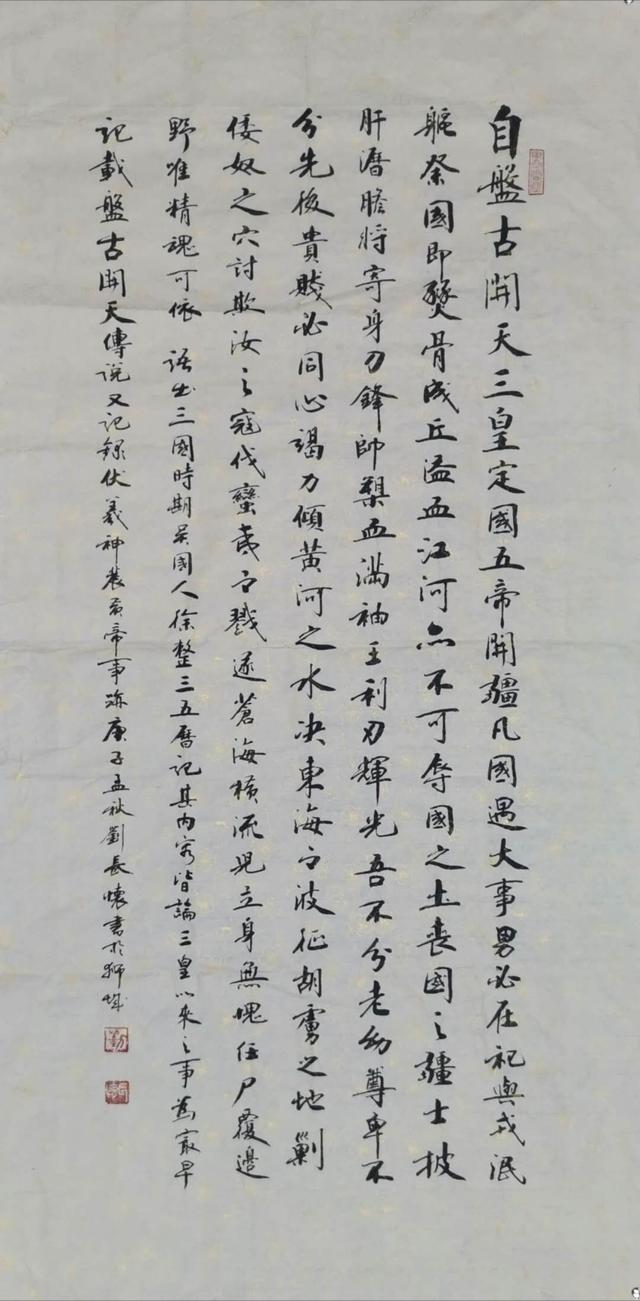 自盤古開天三皇定國五帝開疆凡國遇大事男必在祀與戎泯
軀祭國即燹骨成丘溢血江河亦不可辱國之土喪國之疆士披
肝瀝膽將寄身刀鋒帥槊血滿袖王利刃輝光吾不分老幼尊卑不
分先後貴賤必同心竭力傾黃河之水決東海之波征胡虜之地剿
倭奴之穴討欺汝之寇伐蠻夷之戮遂蒼海橫流兒立身無愧任尸覆邊
野唯精魂可依 語出三國時期吳國人徐整三五曆記其內容皆論三皇以來之事為最早
記載盤古開天傳說又記錄伏羲神農黃帝事跡庚子孟秋劉長懷書於獅城